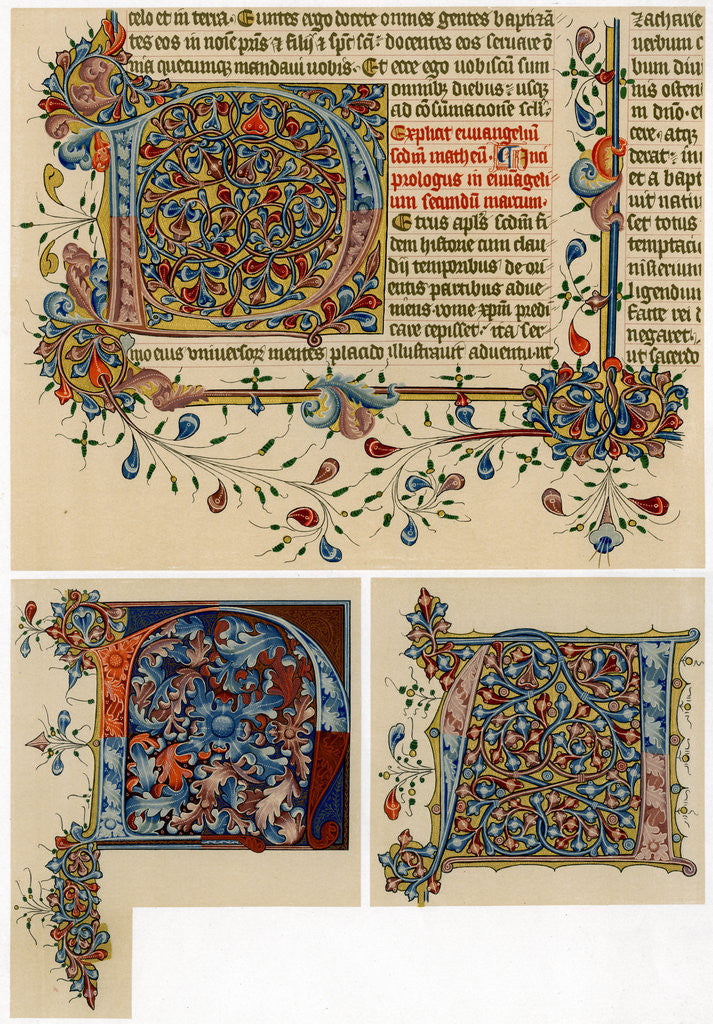 celo et in terra. Euntes ergo docete omnes gentes baptizā
tes eos in noīe pr̄is & filij & sp̄c sc̄i. docentes eos seruare ō
m̄a quecumq; mandaui uobis. Et ecce ego uobiscū sum
omnib; diebus: usq;
ad cōsumacione sc̄li.
Explicit euuangeliū
sc̄dm matheū. Inci
prologus in euuageli
um secundū marcum.
Etrus apl̄s sc̄dm fi
dem historie cum clau
dij temporibus de ori
entis partibus adue
niens rome xp̄m predi
care cepisset. ita ser
mo eius vniversoꝝ mentes placido illustrauit aduentu ut
zacharie
uerbum c
bum diui
nis osten
in dn̄o. et
cere. atq;
derat: in
et a bapt
uit nativ
set totus
temptacu
nisterium
lugendum
facte rei
negaret.
ut sacerdo